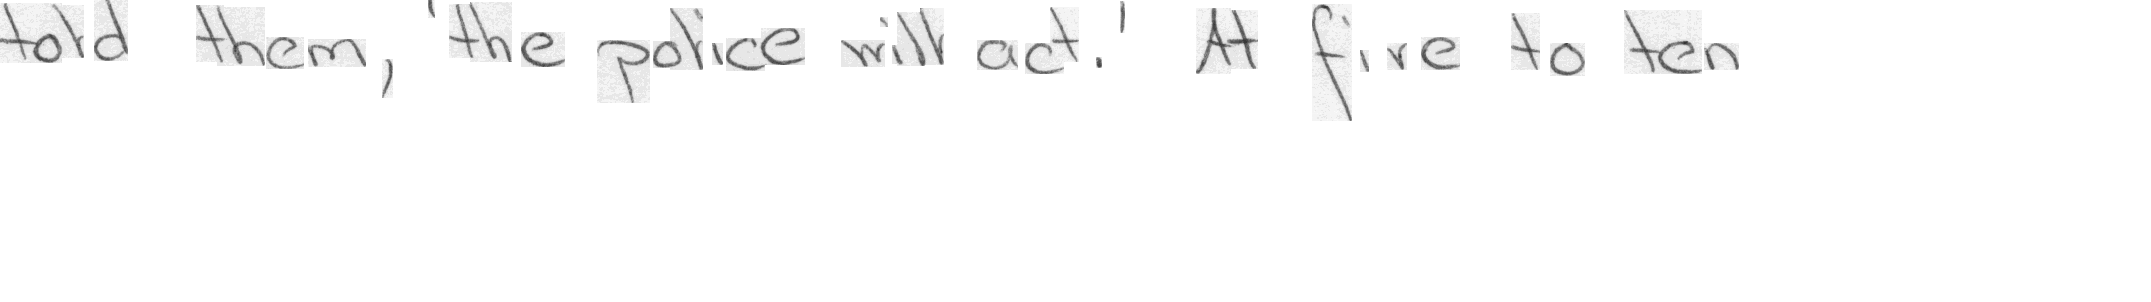 told them, 'the police will act.' At five to ten